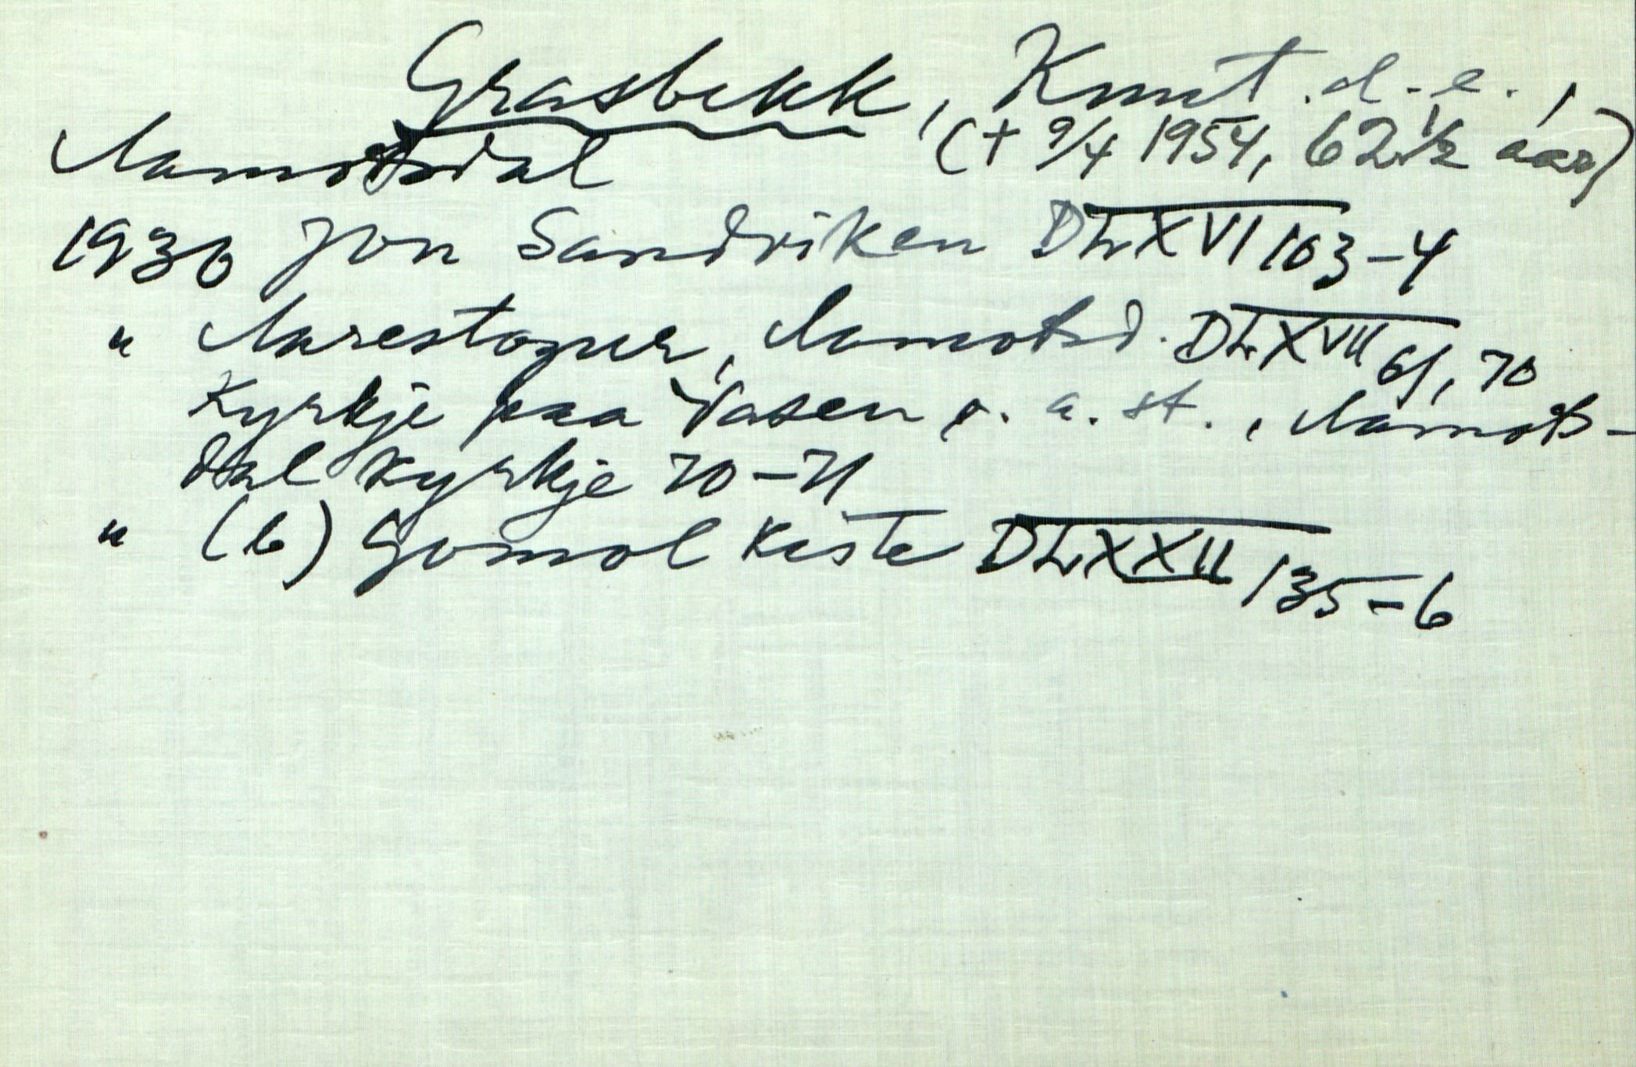 Grasbekk, Knut d.e.,
Aamotsdal († 9/4 1954, 62 1/2 aar)
1930 Jon Sandviken DLXVI 103-4
" Aarestogur, Aamotsd. DLXVII 61, 70
Kyrkje paa Vaaen o.a.st., Aamots-
dal kyrkje 70-71
" (b) Gomol kiste DLXXII 135-6